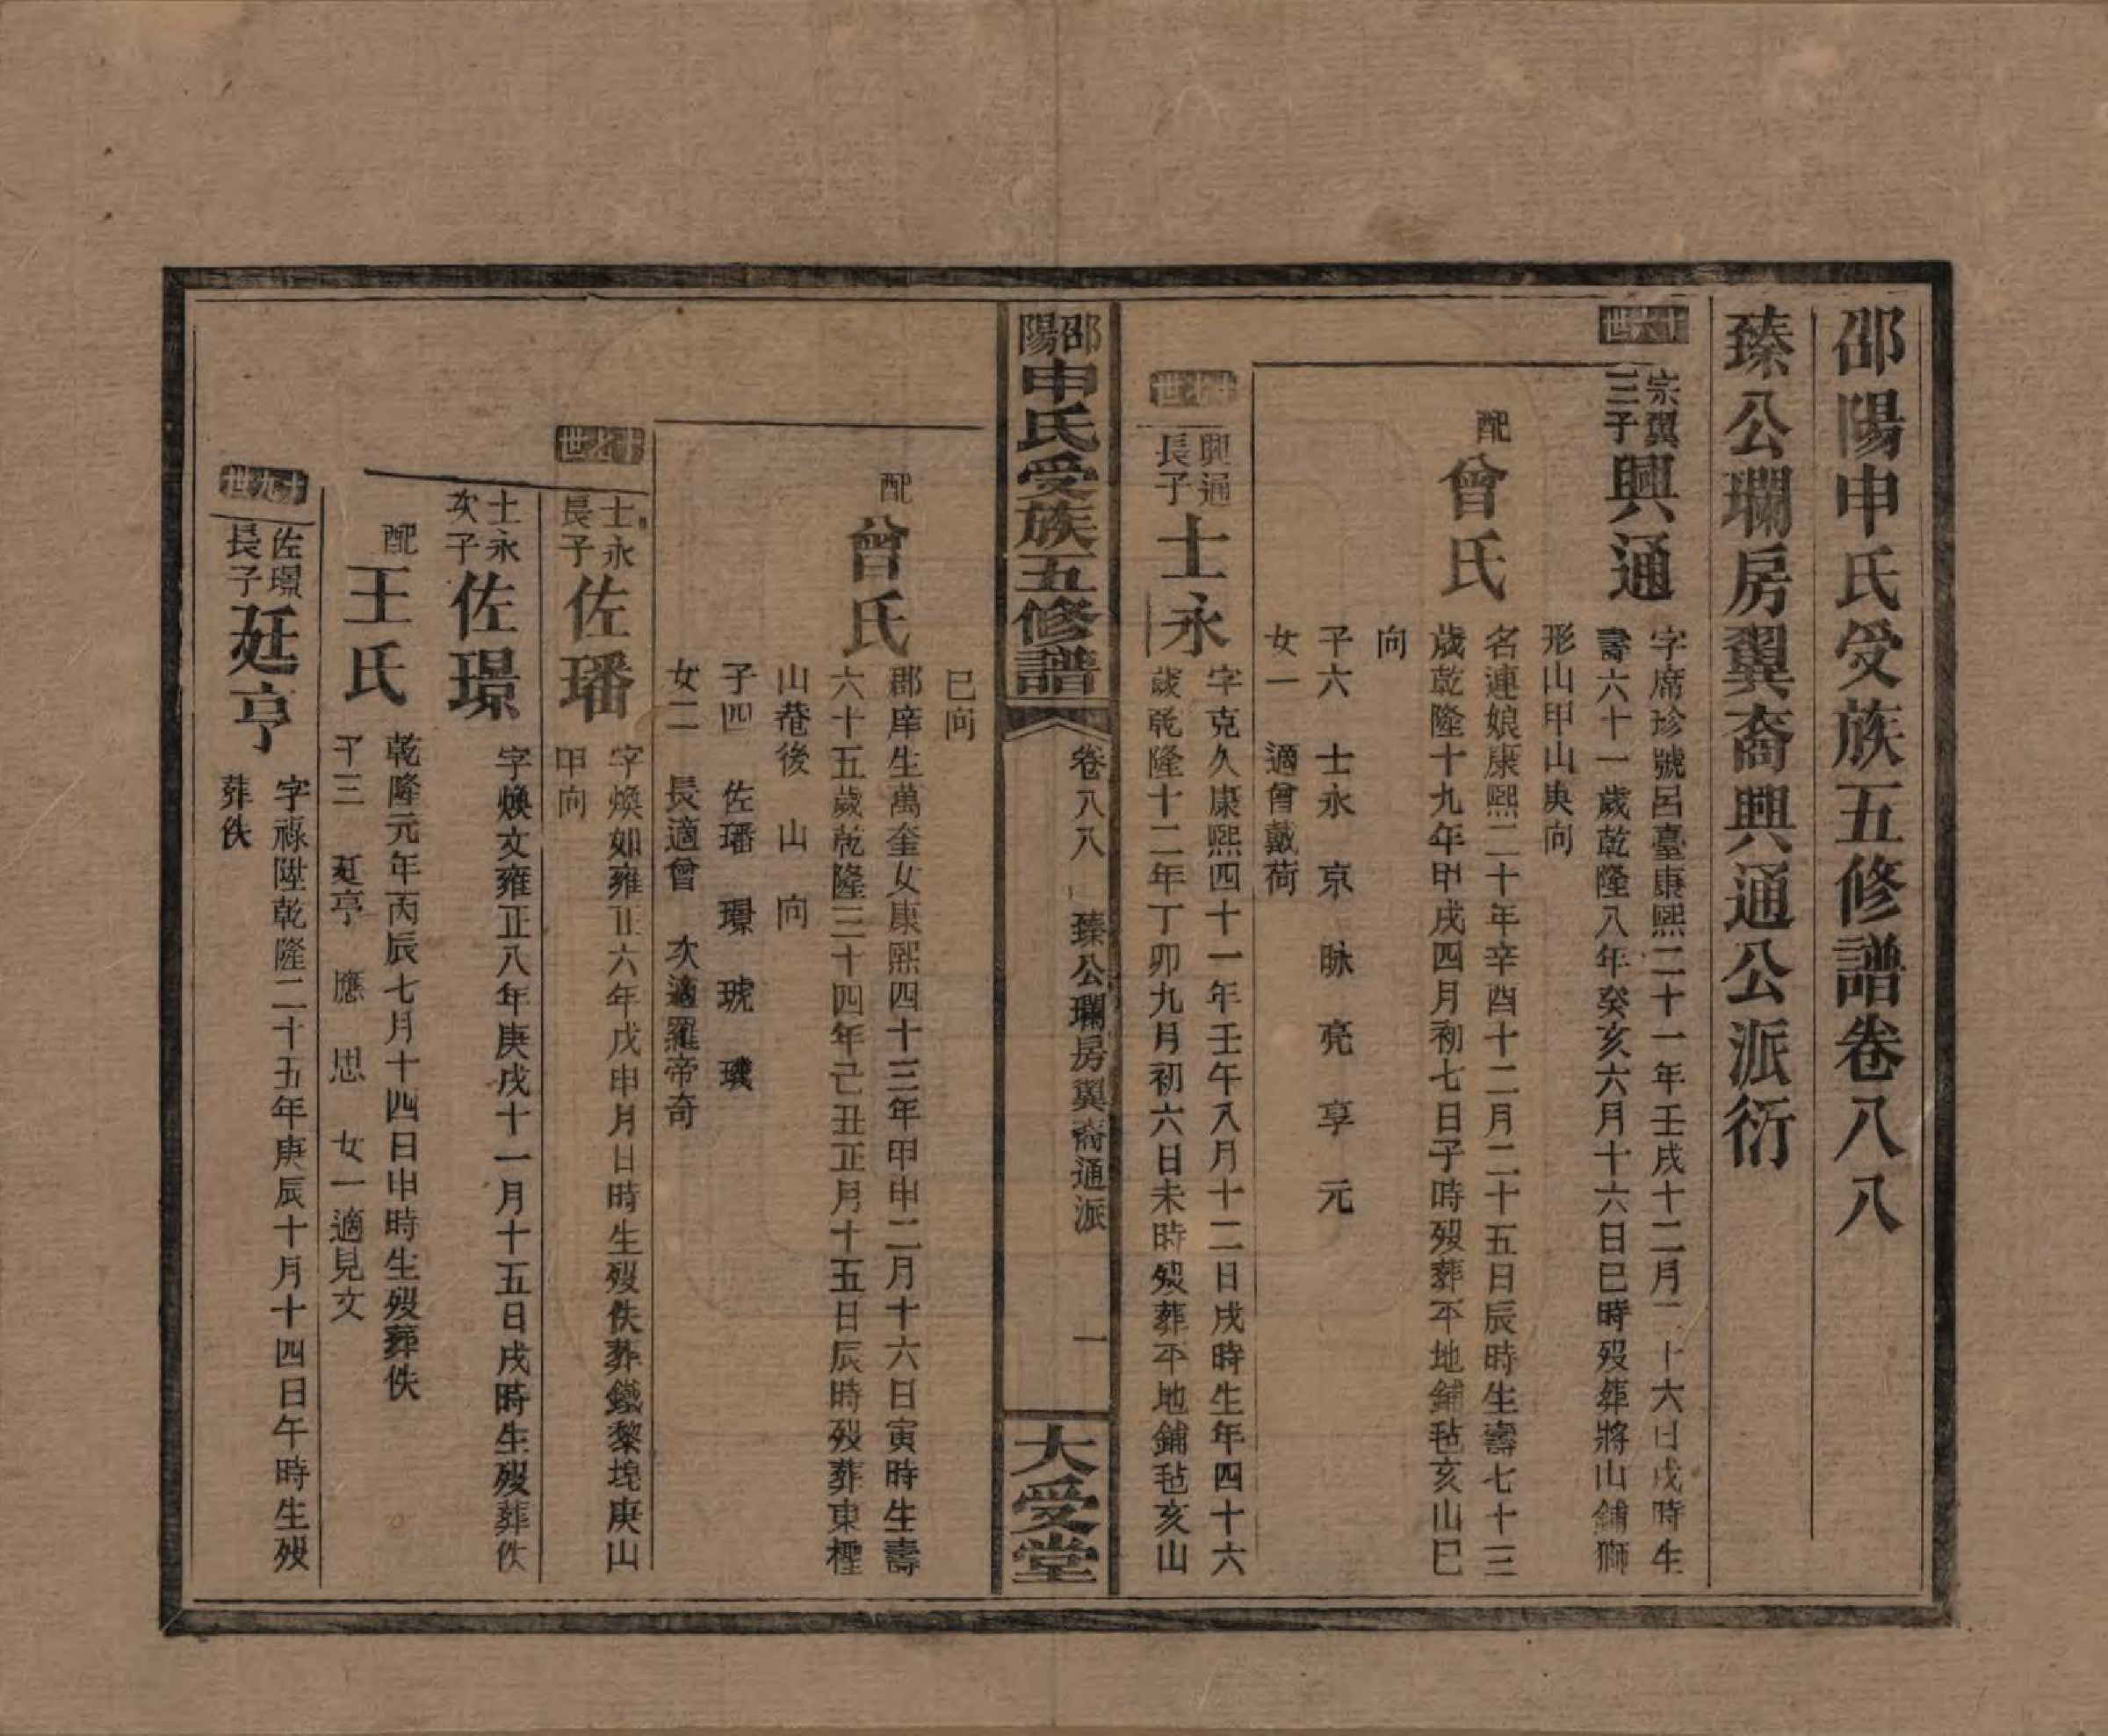 邵陽申氏受族五修譜卷八八
臻公瓓房翼裔興通公派衍
十六世
宗翼三子
興通
字席珍號呂臺康熙二十一年壬戌十二月二十六日戌時生
壽六十一歲乾隆八年癸亥六月十六日巳時歿葬將山鋪獅
形山甲山庚向
配
曾氏
名連娘康熙二十年辛酉十二月二十五日辰時生壽七十三
歲乾隆十九年甲戌四月初七日子時歿葬平地鋪毡亥山巳
向
子六 士永 京 脉 亮 享 元
女一 適曾戴荷
十七世
興通長子
士永
字克久康熙四十一年壬午八月十二日戌時生年四十六
歲乾隆十二年丁卯九月初六日未時歿葬平地鋪毡亥山
邵陽申氏受族五修譜
卷八八 臻公瓓房翼裔通派 一
大受堂
巳向
配
曾氏
郡庠生萬奎女康熙四十三年甲申二月十六日寅時生壽
六十五歲乾隆三十四年己丑正月十五日辰時歿葬東檉
山菴後 山 向
子四 佐璠 璟 琥 璣
女二 長適曾 次適羅帝奇
世
士永長子
佐璠
字煥如雍正六年戊申月日時生歿佚葬鐵黎塊庚山
甲向
士永次子
佐璟
字煥文雍正八年庚戌十一月十五日戌時生歿葬佚
配
王氏
乾隆元年丙辰七月十四日申時生歿葬佚
子三 廷亭 應 思 女一適見文
十九世
佐璟長子
廷亭
字祿陞乾隆二十五年庚辰十月十四日午時生歿
葬佚